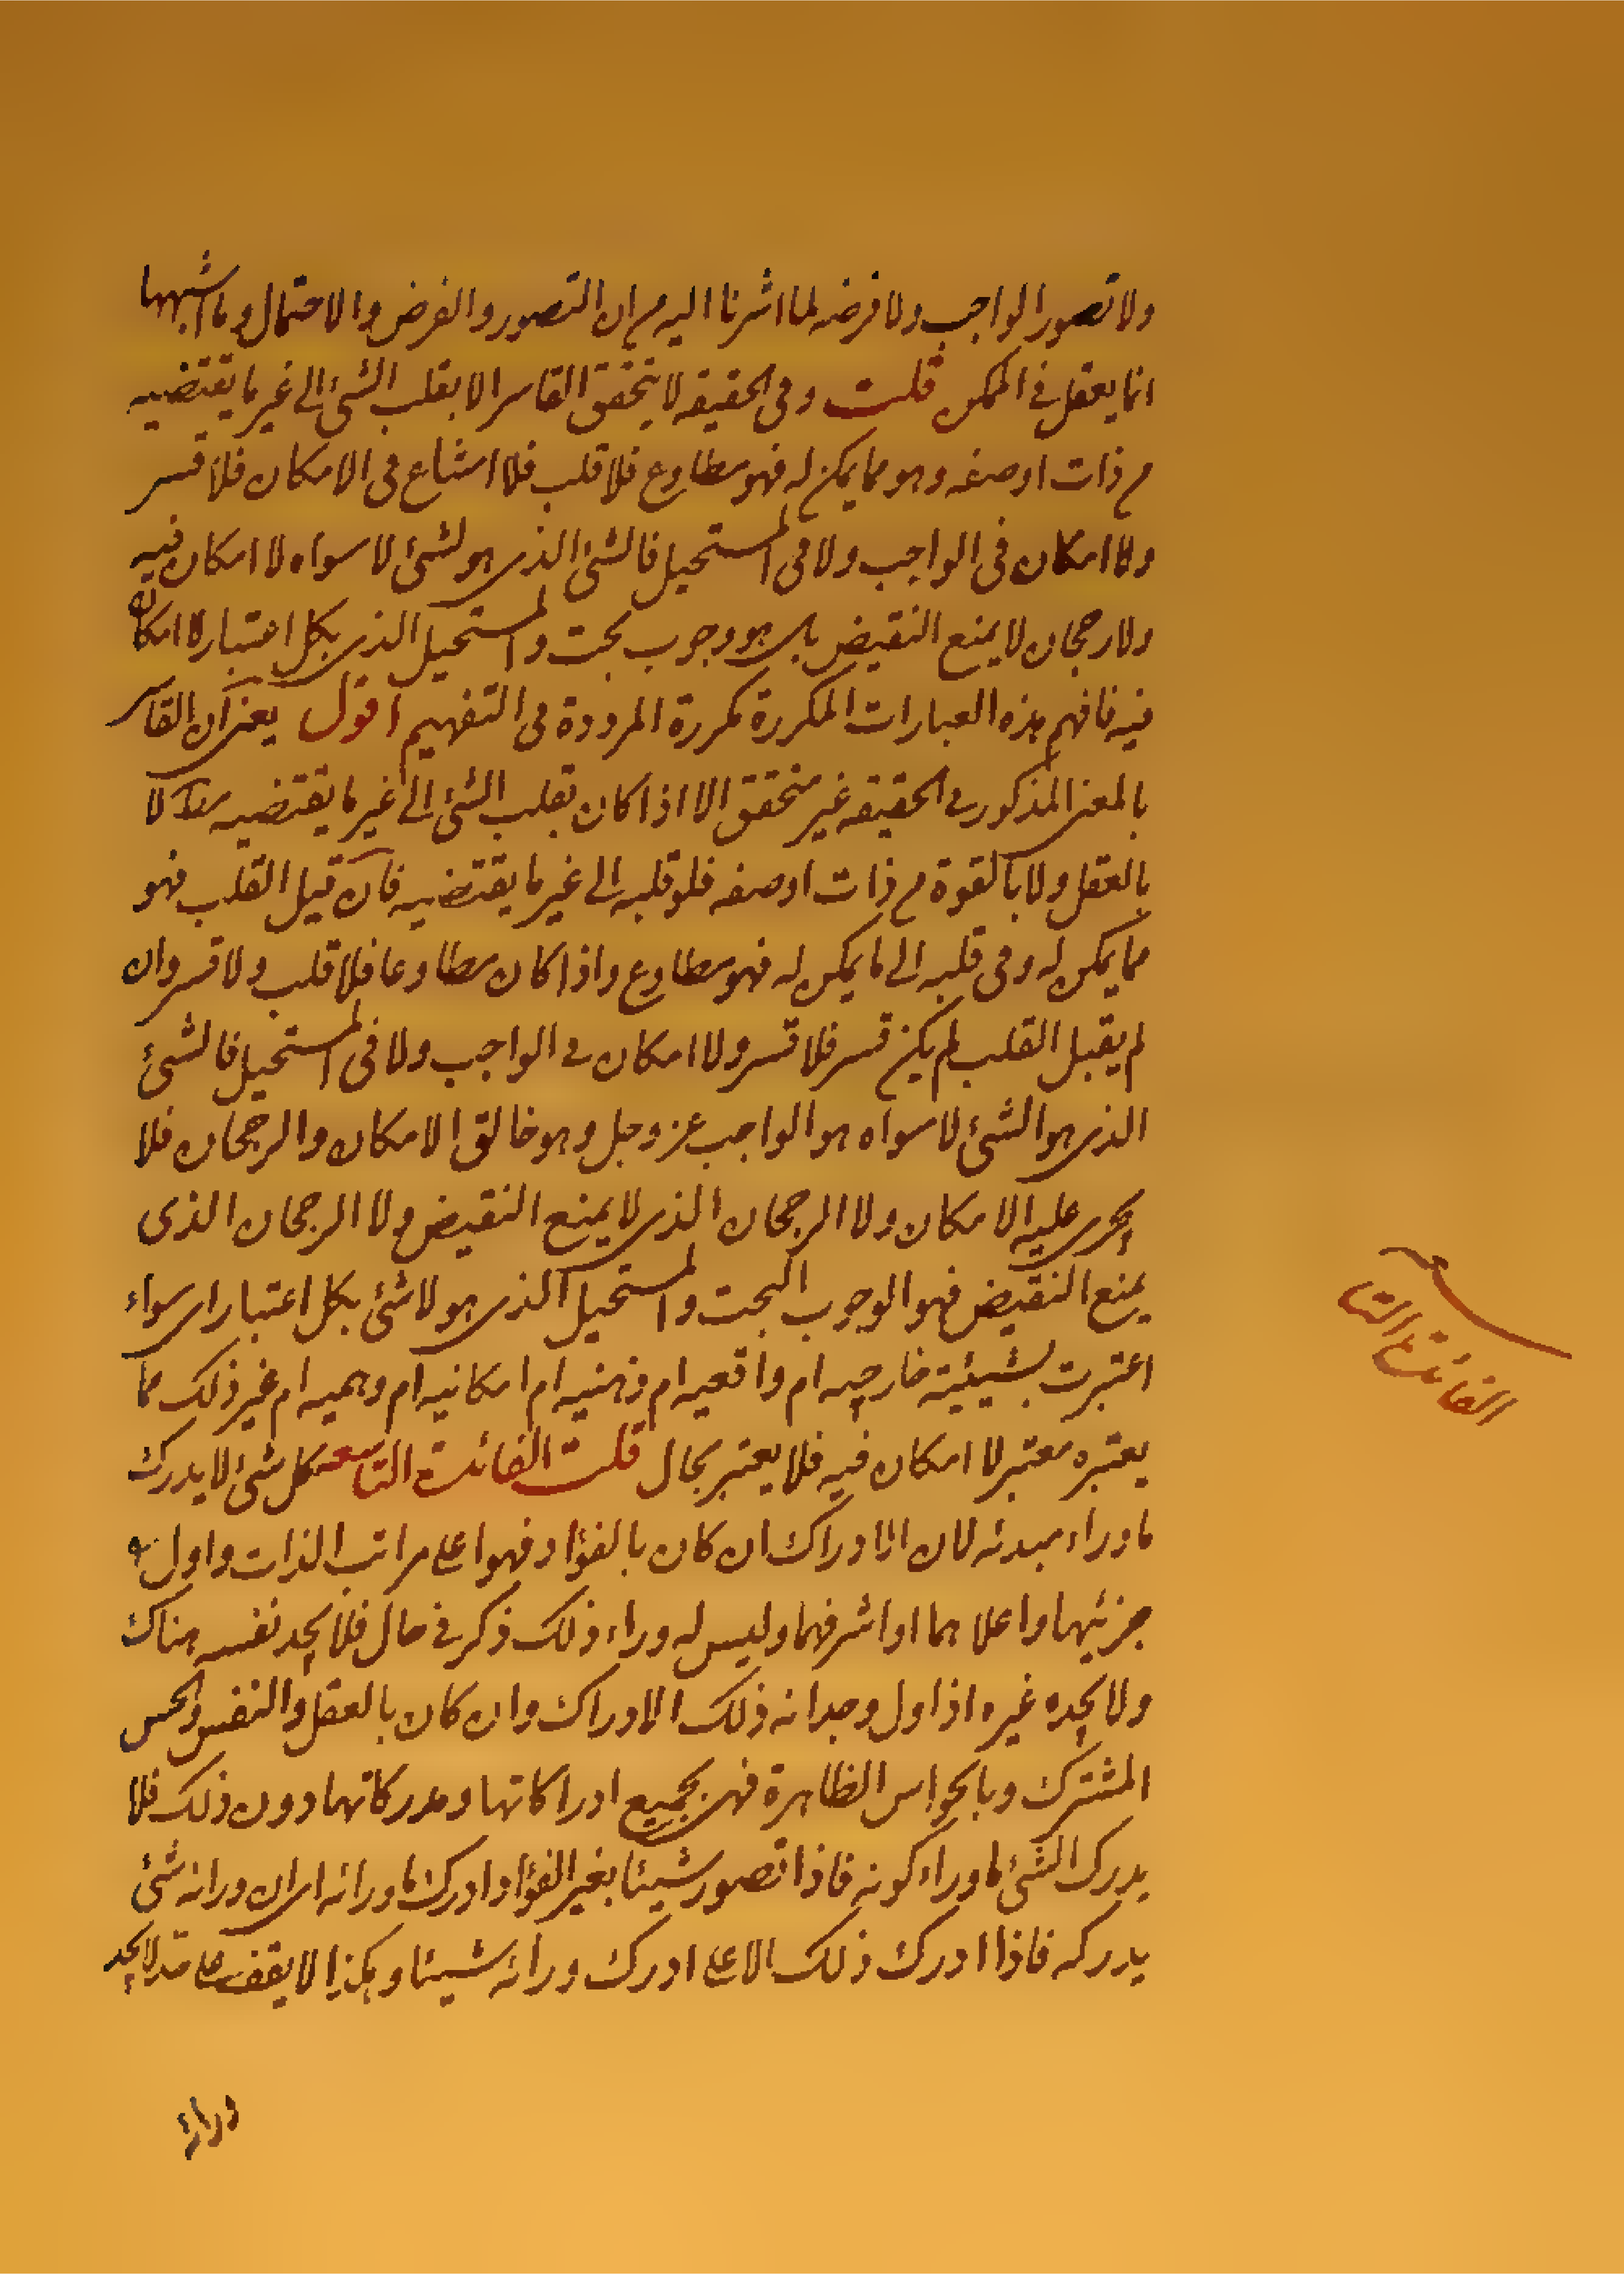 ولا تصور الواجب ولا فرضه لما اشرنا اليه من ان التصور والفرض والاحتمال وما اشبهها
انما يعقل فى الممكن قلت وفى الحقيقه لا يتحقق القاسر الا بقلب الشئ الى غير ما يقتضيه
من ذات او صفه وهو مما يمكن له فهو مطاوع فلا قلب فلا امتناع فى الامكان فلا قسر
ولا امكان فى الواجب ولا فى المستحيل فالشئ الذى هو لشئ لا سواه لا امكان فيه
ولا رجحان لا يمنع النقيض بل هو وجوب بحت والمستحيل الذى بكل اعتبار لا امكان
فيه فافهم هذه العبارات المكررة مكررة المرددة فى التفهيم اقول يعنى ان القاسر
بالمعنى المذكور فى الحقيقه غير متحقق الا اذا كان تقلب الشئ الى غير ما يقتضيه لا
بالعقل ولا بالقوة من ذات او صفه فلو قلبه الى غير ما يقتضيه فان قيل القلب فهو
مما يمكن له وفى قلبه الى ما يمكن له فهو مطاوع واذا كان مطاوعا فلا قلب ولا قسر وان
لم يقبل القلب لم يكن قسر فلا قسر ولا امكان فى الواجب ولا فى المستحيل فالشئ
الذى هو الشئ لا سواه هو الواجب عز وجل وهو خالق الامكان والرجحان فلا
يجرى عليه الامكان ولا الرجحان الذى لا يمنع النقيض ولا الرجحان الذى
يمنع النقيض فهو الوجوب البحت والمستحيل الذى هو لا شئ بكل اعتبار اى سواء
اعتبرت بشيئية خارجيه ام واقعيه ام ذهنيه ام امكانيه ام وهميه ام غير ذلك مما
يعتبره معتبر لا امكان فيه فلا يعتبر بحال قلت الفائدة التاسعه كل شئ لا يدرك
ما وراء مبدئه لان الادراك ان كان بالفؤاد فهو اعلى مراتب الذات واول
جزئيها واعلاهما او اشرفهما وليس له وراء ذلك ذكر فى حال فلا يجد نفسه هناك
ولا يجده غيره اذ اول وجدانه ذلك الادراك وان كان بالعقل والنفس والحس
المشترك وبالحواس الظاهرة فهى بجميع ادراكاتها ومدركاتها دون ذلك فلا
يدرك الشئ ما وراء كونه فاذا تصور شيئا بغير الفؤاد ادرك ما ورائه اى ان ورائه شئ
يدركه فاذا ادرك ذلك الاعلى ادرك ورائه شيئا وهكذا لا يقف على حد لا يجد
ورائه
الفائدة التاسعه